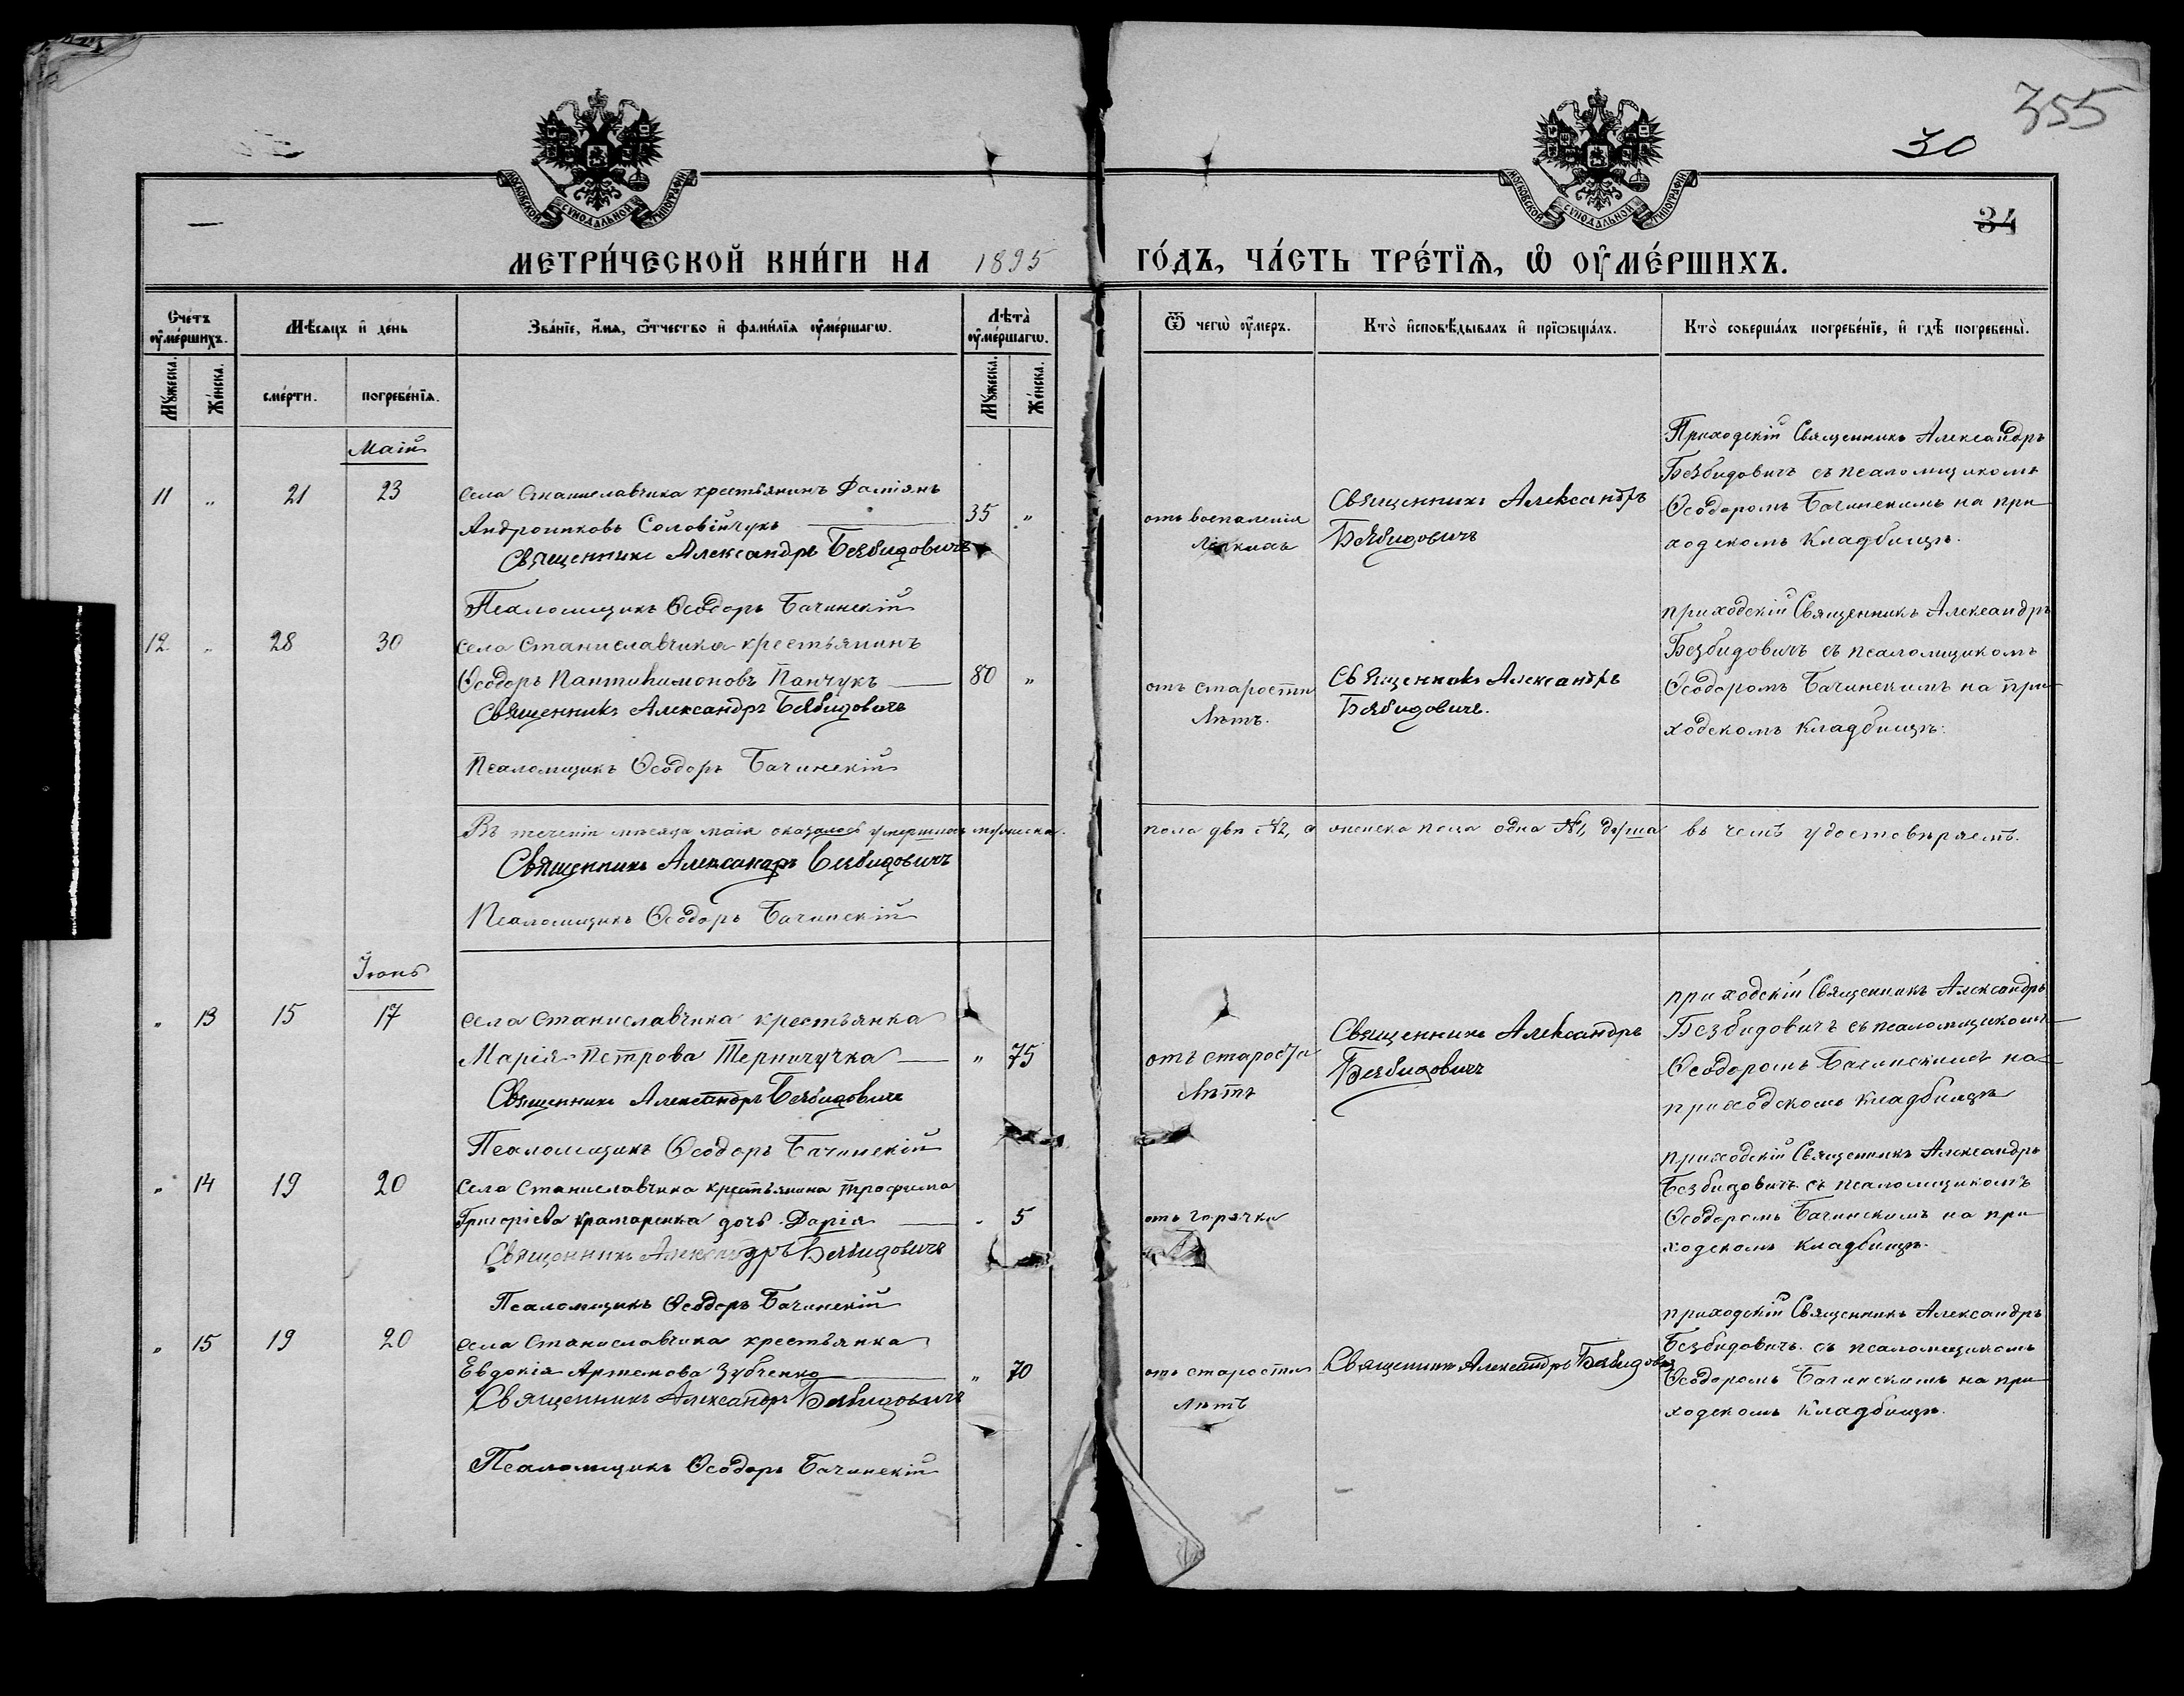 355
30
34
МОСКОВСКОЙ СѴНОДАЛЬНОЙ ТИПОГРАФІИ
МОСКОВСКОЙ СѴНОДАЛЬНОЙ ТИПОГРАФІИ
МЕТРИ́ЧЕСКОЙ КНИ́ГИ НА 1895 ГО́ДЪ, ЧА́СТЬ ТРЕ́ТЇѦ, Ѡ ОУ҆МЕ́РШИХЪ.
Сче́тъ оу҆ме́ршихъ.
Мѣ́сяцъ и҆ де́нь
Зва́нїе, и҆́мя, ѻ҆́тчество и҆ фами́лїя оу҆ме́ршагѡ.
Лѣта̀ оу҆ме́ршагѡ.
Ѿ чегѡ̀ оу҆́меръ.
Кто̀ и҆сповѣ́дывалъ и҆ прїѡбща́лъ.
Кто̀ соверша́лъ погребе́нїе, и҆ гдѣ̀ погребены̀.
Мꙋ́жеска.
Же́нска.
сме́рти.
погребе́нїя.
Мꙋ́жеска.
Же́нска.
Маій
11 " 21 23
села Станиславчика крестьянинъ Даміянъ
Андрониковъ Соловійчукъ
35 "
Священникъ Александръ Безбидовичъ
Псаломщикъ Ѳеодоръ Бачинскій
отъ воспаленія
легкихъ
Священникъ Александръ
Безбидовичъ
Приходскій Священникъ Александръ
Безбидовичъ съ псаломщикомъ
Ѳеодоромъ Бачинскимъ на при
ходскомъ кладбищѣ.
12 " 28 30
села Станиславчика крестьянинъ
Ѳеодоръ Пантилимоновъ Панчукъ
80 "
Священникъ Александръ Безбидовичъ
Псаломщикъ Ѳеодоръ Бачинскій
отъ старости
лѣтъ.
Священникъ Александръ
Безбидовичъ.
приходскій Священникъ Александръ
Безбидовичъ съ псаломщикомъ
Ѳеодоромъ Бачинскимъ на при
ходскомъ кладбищѣ.
Въ теченіи мѣсяца маія оказалось умершихъ мужеска пола два №2, а женска пола одна №1, душа въ чемъ удостовѣряемъ.
Священникъ Александръ Безбидовичъ
Псаломщикъ Ѳеодоръ Бачинскій
Іюнь
" 13 15 17
села Станиславчика крестьянка
Марія Петрова Терничучка
" 75
Священникъ Александръ Безбидовичъ
Псаломщикъ Ѳеодоръ Бачинскій
отъ старости
лѣтъ
Священникъ Александръ
Безбидовичъ
приходскій Священникъ Александръ
Безбидовичъ съ псаломщикомъ
Ѳеодоромъ Бачинскимъ на
приходскомъ кладбищѣ
" 14 19 20
села Станиславчика крестьянина Трофима
Григоріева Крамаренка дочь Дарія
" 5
Священникъ Александръ Безбидовичъ
Псаломщикъ Ѳеодоръ Бачинскій
отъ горячки
приходскій Священникъ Александръ
Безбидовичъ съ псаломщикомъ
Ѳеодоромъ Бачинскимъ на при
ходскомъ кладбищѣ.
" 15 19 20
села Станиславчика крестьянка
Евдокія Артемова Зубченко
" 70
Священникъ Александръ Безбидовичъ
Псаломщикъ Ѳеодоръ Бачинскій
отъ старости
лѣтъ
Священникъ Александръ Безбидовичъ
приходскій Священникъ Александръ
Безбидовичъ съ псаломщикомъ
Ѳеодоромъ Бачинскимъ на при
ходскомъ кладбищѣ.